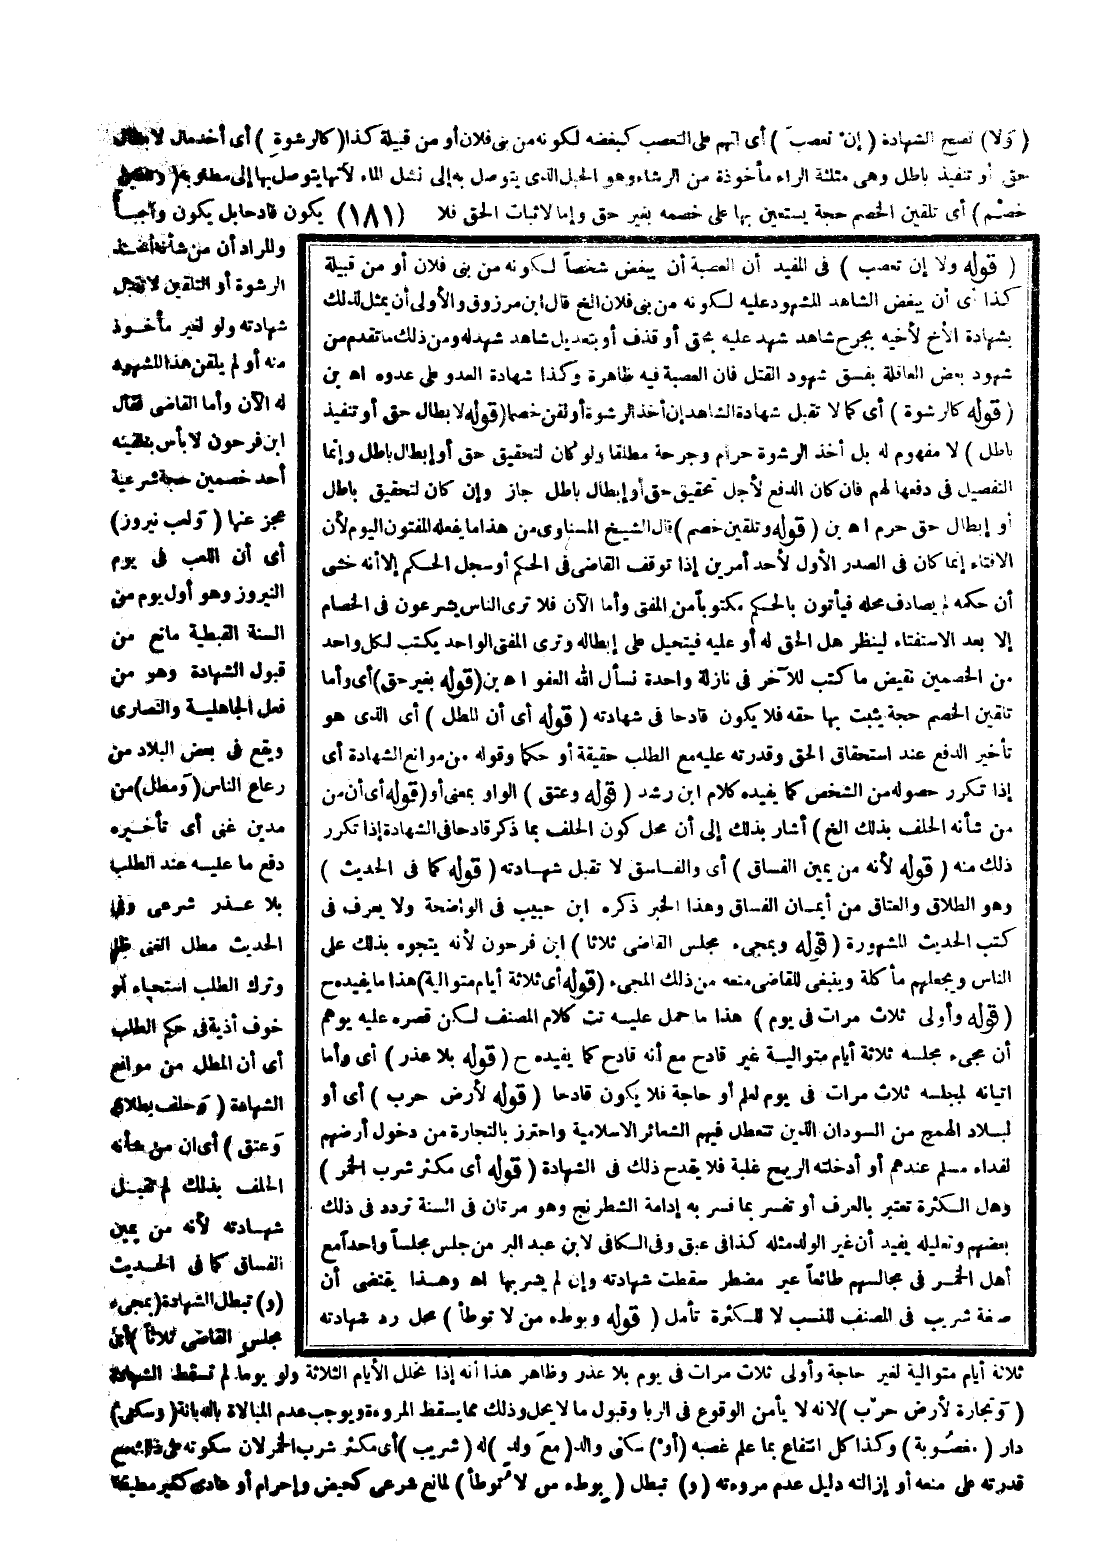 (وَلا) تصح الشهادة (إنْ تعصبَ) أى اتهم على التعصب كبغضه لكونه من بنى فلان أو من قبيلة كذا (كالرشوةِ) أى أخذ مال لابطال
حق أو تنفيذ باطل وهى مثلثة الراء مأخوذة من الرشاء وهو الحبل الذى يتوصل به إلى نشل الماء لأنها يتوصل بها إلى مطلوبه (وتلقين
خصْم) أى تلقين الخصم حجة يستعين بها على خصمه بغير حق وإما لاثبات الحق فلا (١٨١) يكون قادحا بل يكون واجباً
والمراد أن من شأنه أخذ
الرشوة أو التلقين لا تقبل
شهادته ولو لغير مأخوذ
منه أو لم يلقن هذا المشهود
له الآن وأما القاضى فقال
ابن فرحون لا بأس بتلقينه
أحد خصمين حجة شرعية
عجز عنها (وَلعب نيروز)
أى أن اللعب فى يوم
النيروز وهو أول يوم من
السنة القبطية مانع من
قبول الشهادة وهو من
فعل الجاهلية والنصارى
ويقع فى بعض البلاد من
رعاع الناس (وَمطل) من
مدين غنى أى تأخيره
دفع ما عليه عند الطلب
بلا عذر شرعى وفى
الحديث مطل الغنى ظلم
وترك الطلب استحياء أو
خوف أذية فى حكم الطلب
أى أن المطل من موانع
الشهادة (وَحلف بطلاق
وَعتق) أى ان من شأنه
الحلف بذلك لم تقبل
شهادته لأنه من يمين
الفساق كما فى الحديث
(و) تبطل الشهادة (بمجىء
مجلس القاضى ثلاثاً) أى
(قوله ولا إن تعصب) فى المفيد أن العصبة أن يبغض شخصاً لكونه من بنى فلان أو من قبيلة
كذا أى أن يبغض الشاهد المشهود عليه لكونه من بنى فلان الخ قال ابن مرزوق والأولى أن يمثل لذلك
بشهادة الأخ لأخيه بجرح شاهد شهد عليه بحق أو قذف أو بتعديل شاهد شهد له ومن ذلك ما تقدم من
شهود بعض العاقلة بفسق شهود القتل فان العصبة فيه ظاهرة وكذا شهادة العدو على عدوه اه بن
(قوله كالرشوة) أى كما لا تقبل شهادة الشاهد إن أخذ الرشوة أو لقن خصما (قوله لابطال حق أو تنفيذ
باطل) لا مفهوم له بل أخذ الرشوة حرام وجرحة مطلقا ولو كان لتحقيق حق أو إبطال باطل وإنما
التفصيل فى دفعها لهم فان كان الدفع لأجل تحقيق حق أو إبطال باطل جاز وإن كان لتحقيق باطل
أو إبطال حق حرم اه بن (قوله وتلقين خصم) قال الشيخ المسناوى من هذا ما يفعله المفتون اليوم لأن
الافتاء إنما كان فى الصدر الأول لأحد أمرين إذا توقف القاضى فى الحكم أو سجل الحكم إلا أنه خشى
أن حكمه لم يصادف محله فيأتون بالحكم مكتوباً من المفتى وأما الآن فلا ترى الناس يشرعون فى الخصام
إلا بعد الاستفتاء لينظر هل الحق له أو عليه فيتحيل على إبطاله وترى المفتى الواحد يكتب لكل واحد
من الخصمين نقيض ما كتب للآخر فى نازلة واحدة نسأل الله العفو اه بن (قوله بغير حق) أى وأما
تلقين الخصم حجة يثبت بها حقه فلا يكون قادحا فى شهادته (قوله أى أن المطل) أى الذى هو
تأخير الدفع عند استحقاق الحق وقدرته عليه مع الطلب حقيقة أو حكما وقوله من موانع الشهادة أى
إذا تكرر حصوله من الشخص كما يفيده كلام ابن رشد (قوله وعتق) الواو بمعنى أو (قوله أى أن من
من شأنه الحلف بذلك الخ) أشار بذلك إلى أن محل كون الحلف بما ذكر قادحا فى الشهادة إذا تكرر
ذلك منه (قوله لأنه من يمين الفساق) أى والفاسق لا تقبل شهادته (قوله كما فى الحديث)
وهو الطلاق والعتاق من أيمان الفساق وهذا الخبر ذكره ابن حبيب فى الواضحة ولا يعرف فى
كتب الحديث المشهورة (قوله وبمجىء مجلس القاضى ثلاثا) ابن فرحون لأنه يتجوه بذلك على
الناس ويجعلهم مأكلة وينبغى للقاضى منعه من ذلك المجىء (قوله أى ثلاثة أيام متوالية) هذا ما يفيده ح
(قوله وأولى ثلاث مرات فى يوم) هذا ما حمل عليه تت كلام المصنف لكن قصره عليه يوهم
أن مجىء مجلسه ثلاثة أيام متوالية غير قادح مع أنه قادح كما يفيده ح (قوله بلا عذر) أى وأما
اتيانه لمجلسه ثلاث مرات فى يوم لعلم أو حاجة فلا يكون قادحا (قوله لأرض حرب) أى أو
لبلاد الهمج من السودان الذين تتعطل فيهم الشعائر الاسلامية واحترز بالتجارة من دخول أرضهم
لفداء مسلم عندهم أو أدخلته الريح غلبة فلا يقدح ذلك فى الشهادة (قوله أى مكثر شرب الخمر)
وهل الكثرة تعتبر بالعرف أو تفسر بما فسر به إدامة الشطرنج وهو مرتان فى السنة تردد فى ذلك
بعضهم وتعليله يفيد أن غير الولد مثله كذا فى عبق وفى الكافى لابن عبد البر من جلس مجلساً واحداً مع
أهل الخمر فى مجالسهم طائعاً غير مضطر سقطت شهادته وإن لم يشربها اه وهذا يقتضى أن
صفة شريب فى المصنف للنسب لا للكثرة تأمل (قوله وبوطء من لا توطأ) محل رد شهادته
ثلاثة أيام متوالية لغير حاجة وأولى ثلاث مرات فى يوم بلا عذر وظاهر هذا أنه إذا تخلل الأيام الثلاثة ولو يوما لم تسقط الشهادة
(وَتجارة لأرض حرْب) لانه لا يأمن الوقوع فى الربا وقبول ما لا يحل وذلك مما يسقط المروءة ويوجب عدم المبالاة بالديانة (وسكنى)
دار (مغصُوبة) وكذا كل انتفاع بما علم غصبه (أوْ) سكنى والد (معَ ولد) له (شريب) أى مكثر شرب الخمر لان سكوته على ذلك مع
قدرته على منعه أو إزالته دليل عدم مروءته (و) تبطل (بوطء من لا تُوطأ) لمانع شرعى كحيض وإحرام أو عادى كغير مطيقة